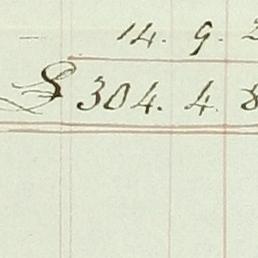 — 14. 9. 2
£ 304. 4. 8